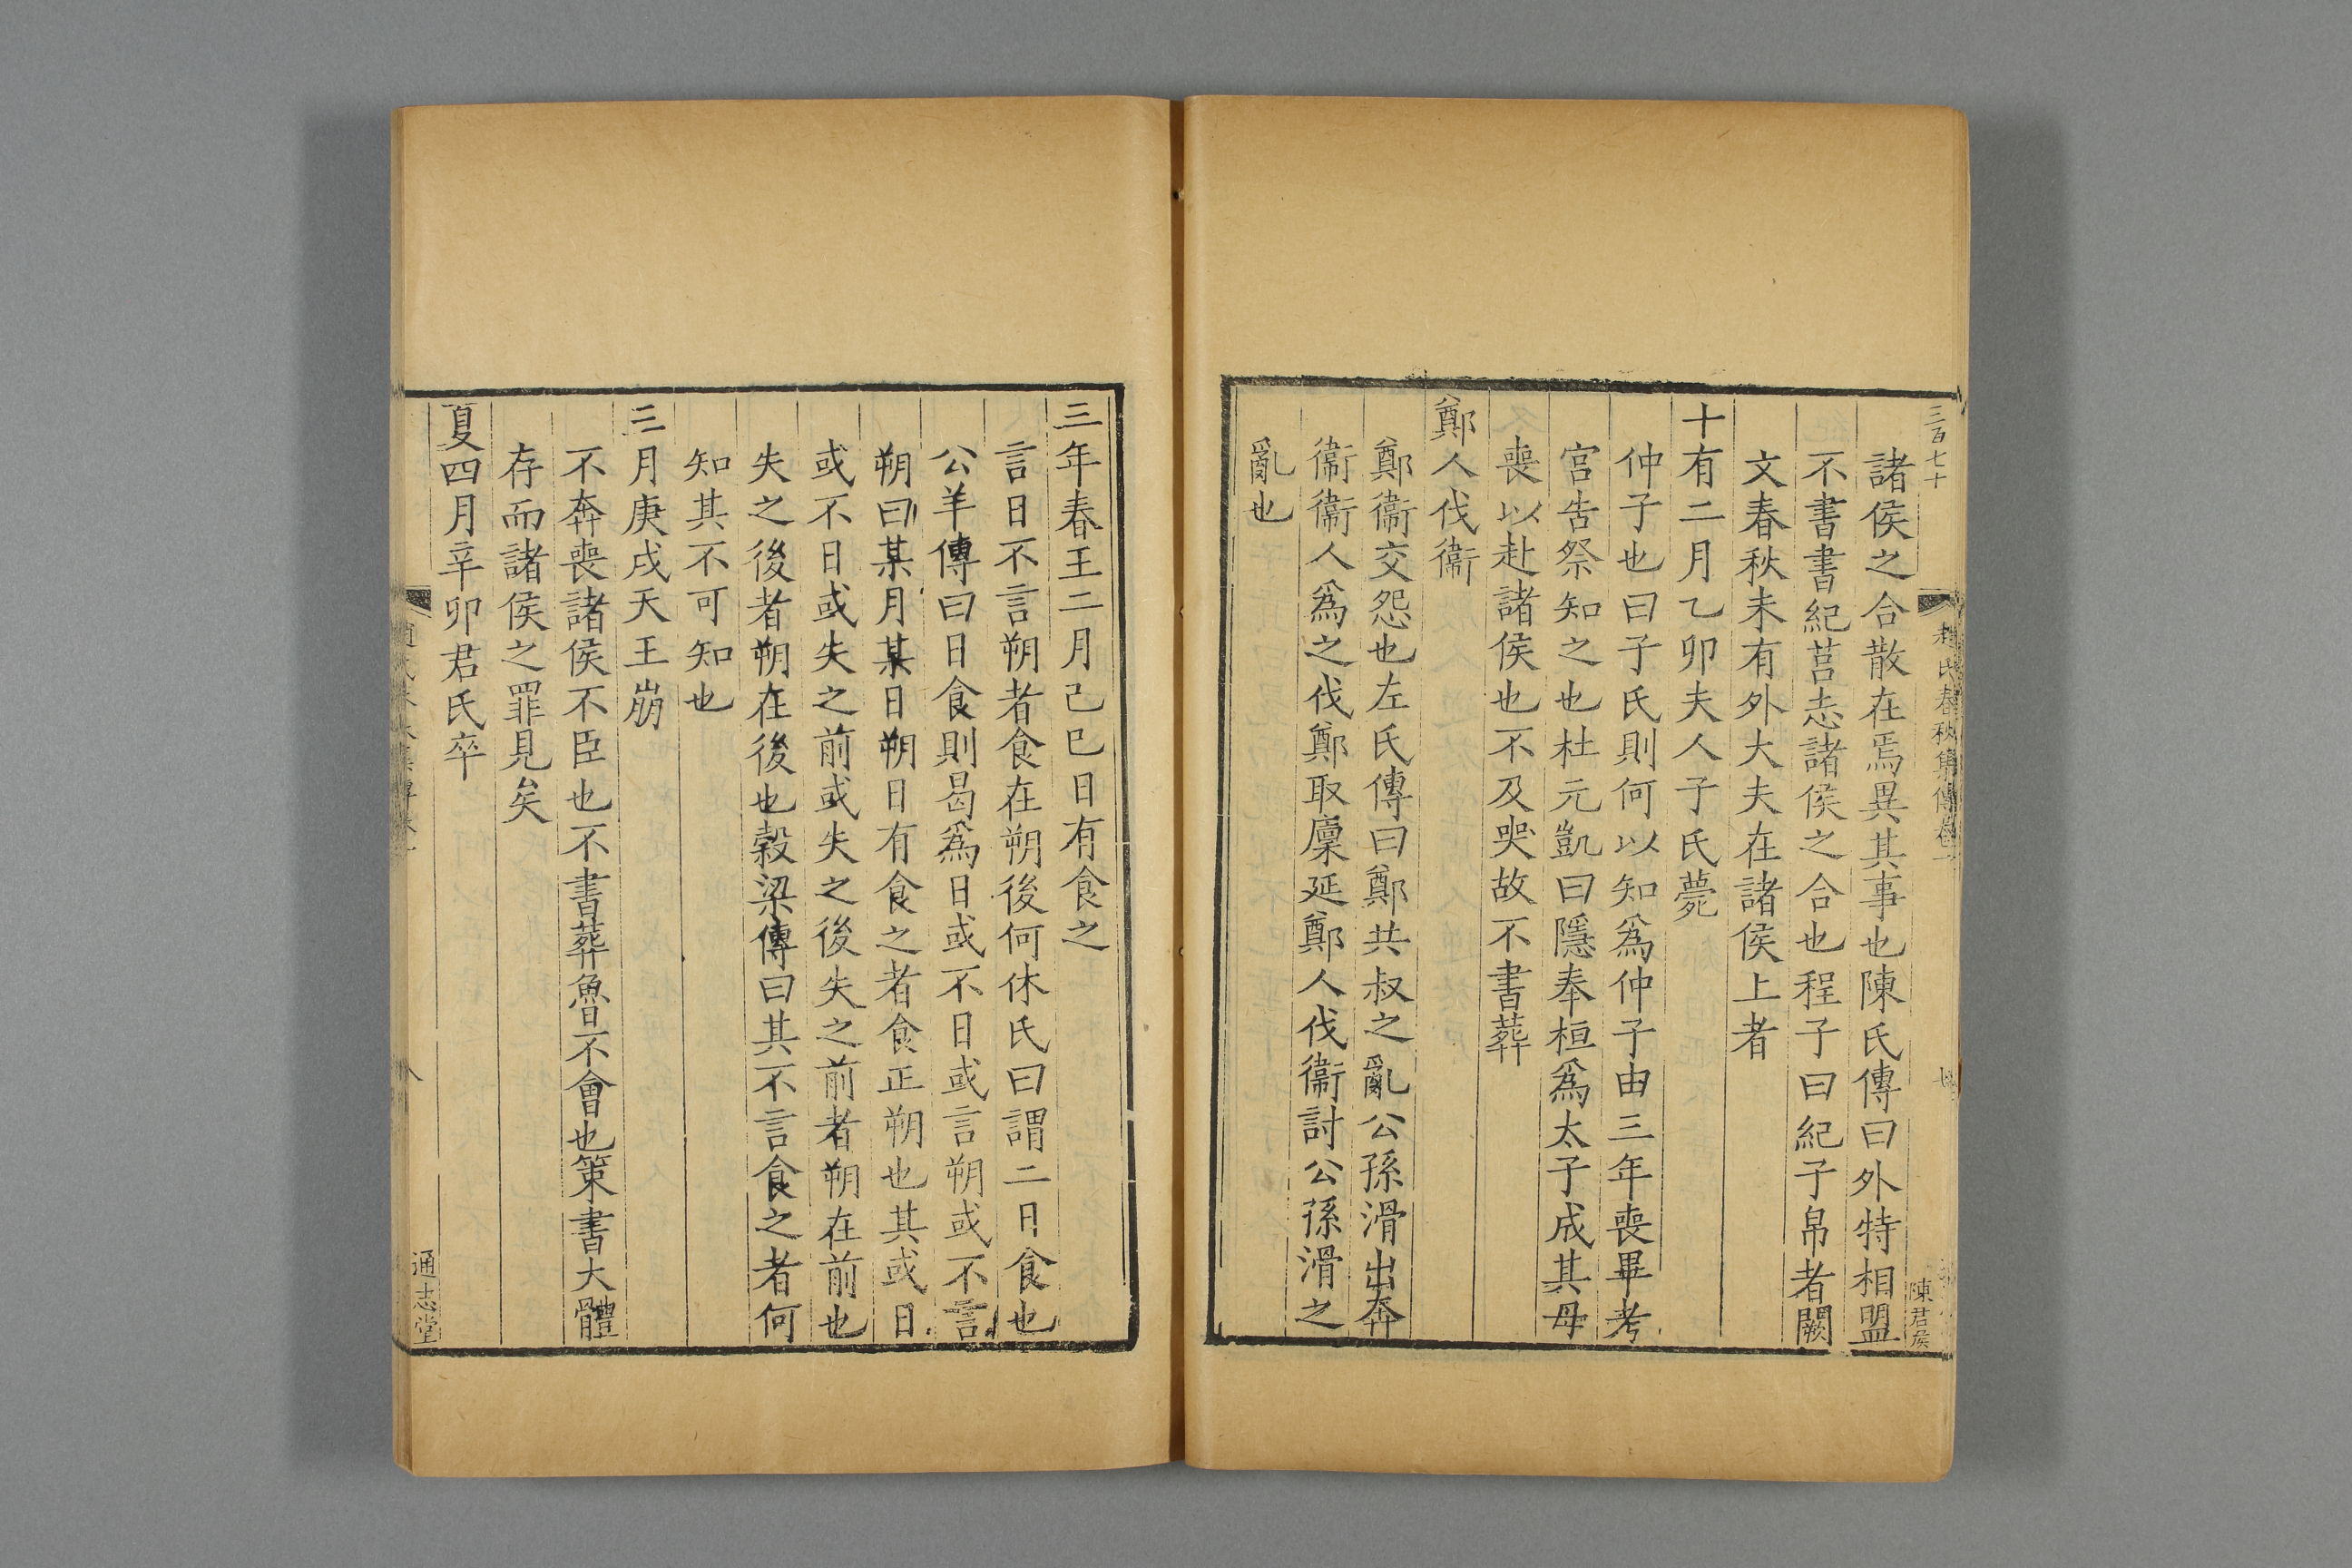 三百七十
趙氏春秋集傳卷一
七
陳君侯
諸侯之合散在焉異其事也陳氏傳曰外特相盟
不書書紀莒志諸侯之合也程子曰紀子帛者闕
文春秋未有外大夫在諸侯上者
十有二月乙卯夫人子氏薨
仲子也曰子氏則何以知爲仲子由三年喪畢考
宮告祭知之也杜元凱曰隱奉桓爲太子成其母
喪以赴諸侯也不及哭故不書葬
鄭人伐衞
鄭衞交怨也左氏傳曰鄭共叔之亂公孫滑出奔
衞衞人爲之伐鄭取廩延鄭人伐衞討公孫滑之
亂也
三年春王二月己巳日有食之
言日不言朔者食在朔後何休氏曰謂二日食也
公羊傳曰日食則曷爲日或不日或言朔或不言
朔曰某月某日朔日有食之者食正朔也其或日
或不日或失之前或失之後失之前者朔在前也
失之後者朔在後也穀梁傳曰其不言食之者何
知其不可知也
三月庚戌天王崩
不奔喪諸侯不臣也不書葬魯不會也策書大體
存而諸侯之罪見矣
夏四月辛卯君氏卒
八
通志堂